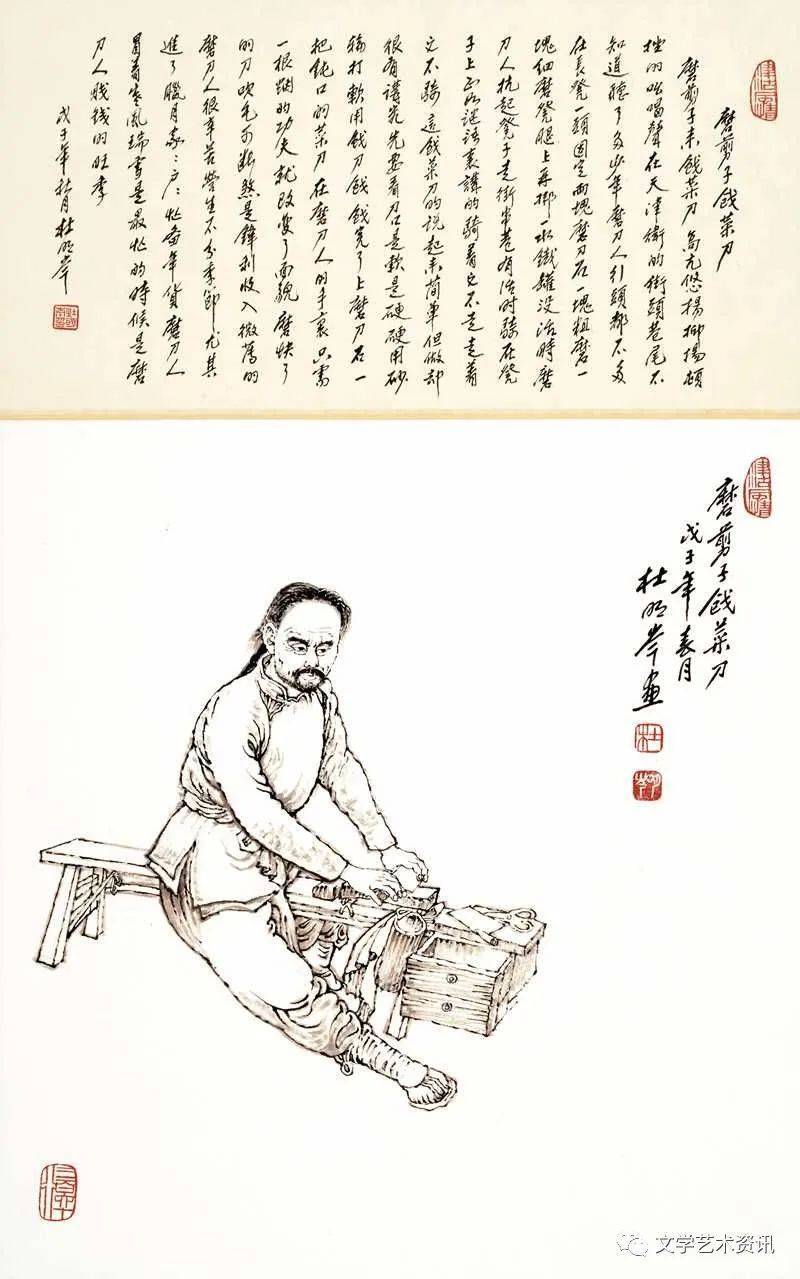 磨剪子戗菜刀
磨剪子来戗菜刀高亢悠揚抑揚頓
挫的吆喝聲在天津衛的街頭巷尾不
知道聽了多少年磨刀人頭都不多
在長凳一頭固定兩塊磨刀石一塊粗磨一
塊細磨凳腿上再挷一水鐵罐没活時磨
刀人扛起凳子走街串巷有活时骑在凳
子上正如谜语裏講的骑着它不走走着
它不骑這戗菜刀的说起来简單但做却
很有講究先要看刀口是軟是硬硬用砂
轮打軟用戗刀戗戗完了上磨刀石一
把鈍口的菜刀在磨刀人的手裏只需
一根烟的功夫就改变了面貌磨快了
的刀吹毛可断煞是鋒利收入微薄的
磨刀人很辛苦营生不分季節尤其
進了臘月家々户々忙备年货磨刀人
冒着寒風瑞雪是最忙的時候是磨
刀人賺錢的旺季
戊子年秋月杜明岑
磨剪子戗菜刀
戊子年春月
杜明岑画
杜
文学艺术资讯